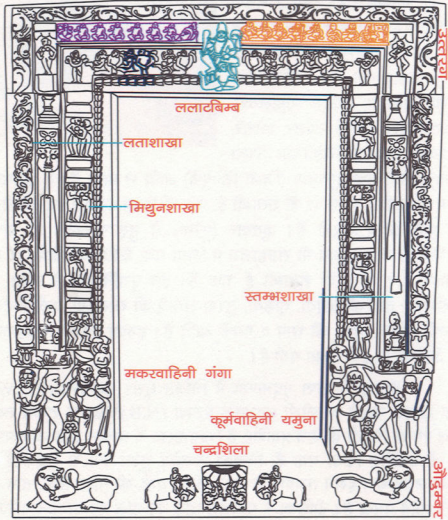 उत्तरंग
ललाटबिम्ब
लताशाखा
मिथुनशाखा
स्तम्भशाखा
मकरवाहिनी गंगा
कूर्मवाहिनी यमुना
चन्द्रशिला
औदुम्बर